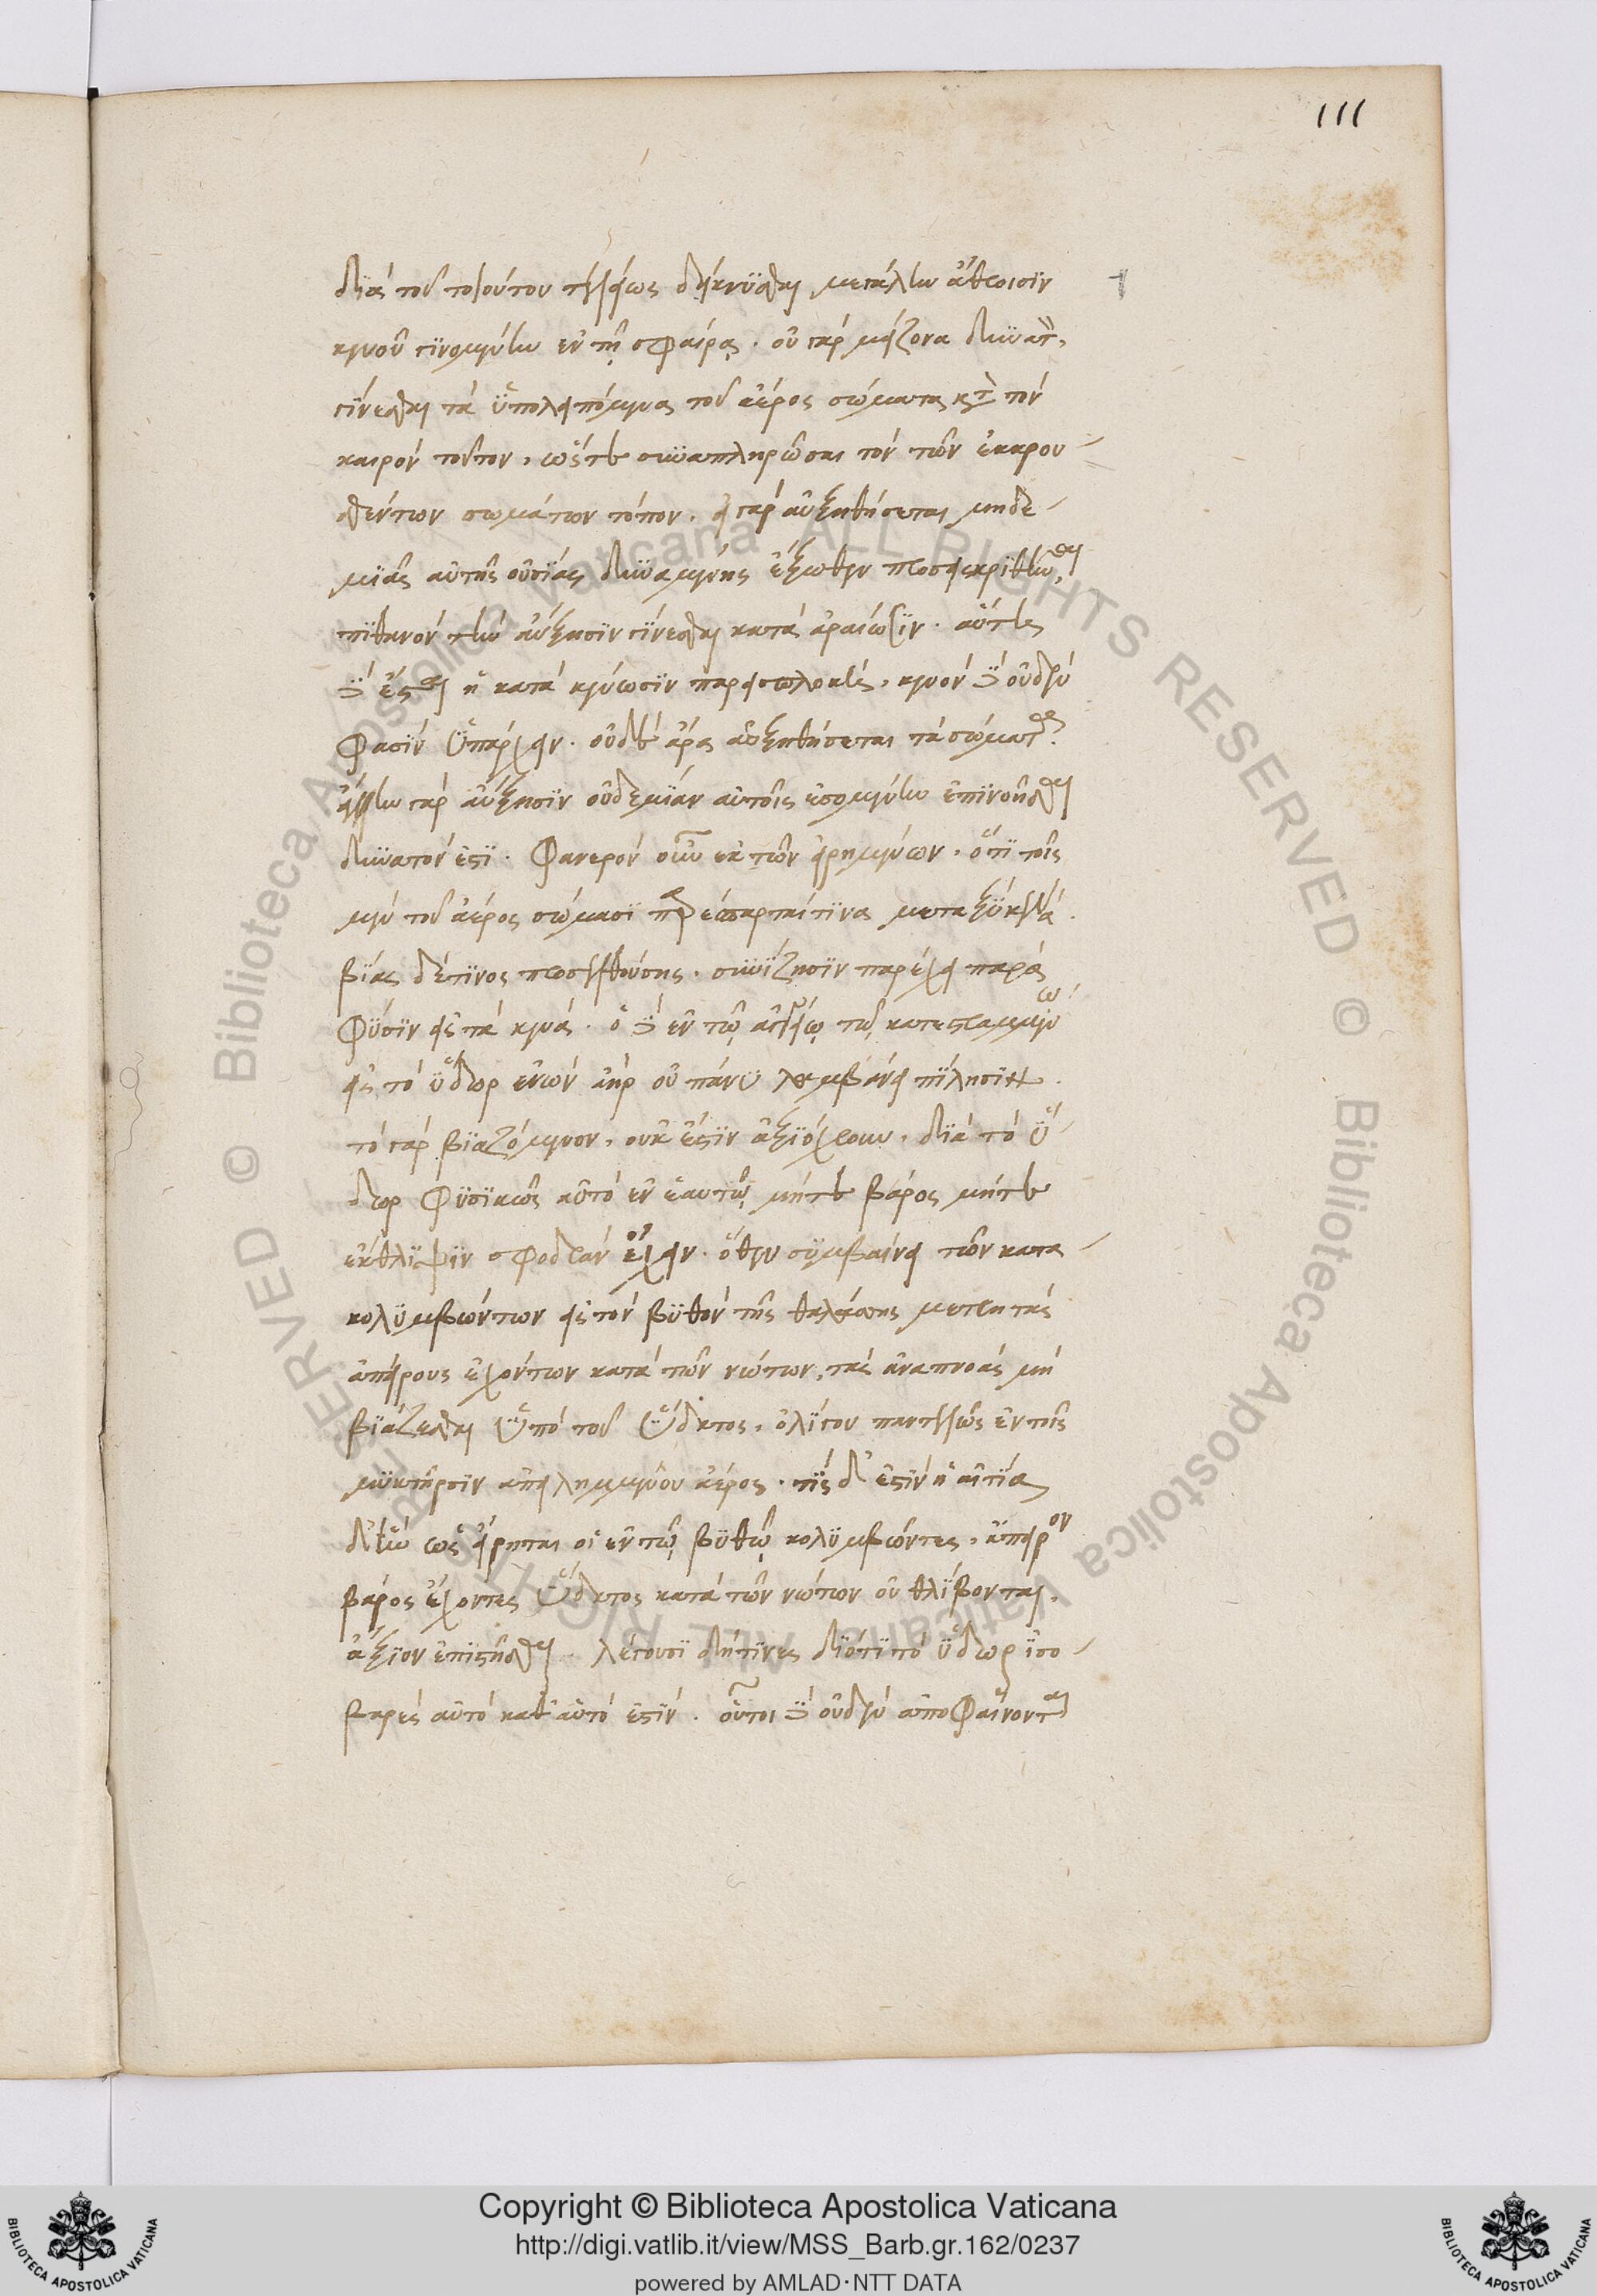 111
διὰ τοῦ τοιούτου τελείως δείκνυσθαι μεγάλην ἄθροισιν
κενοῦ γινομένην ἐν τῆ σφαίρα. οὐ γὰρ μείζονα δυνατ
γίνεσθαι τὰ ὑπολειπόμενα τοῦ ἀέρος σώματα κτ τὸν
καιρὸν τοῦτον, ὥστε συναπληρῶσαι τὸν τῶν ἐκκρου-
σθέντων σωμάτων τόπον. εἰ γὰρ αὐξηθήσεται μηδε-
μιᾶς αὐτῆς οὐσίας δυναμένης ἔξωθεν προσεικριθῆναι
πιθανὸν τὴν αὔξησιν γίνεσθαι κατὰ ἀραίωσιν. αὕτη
δέ ἐσται ἡ κατὰ κένωσιν παρειπλοκὴ, κενὸν δὲ οὐδὲν
φασὶν ὑπάρχειν. οὐδὲ ἄρα αὐξηθήσεται τὰ σώματα
ἄλλην γὰρ αὔξησιν οὐδεμίαν αὐτοῖς ἐσομένην ἐπινοῆσθαι
δυνατόν ἐστι. φανερὸν οὖν ἐκ τῶν εἰρημένων, ὅτι τοῖς
μὲν τοῦ ἀέρος σώμασι παρέσπαρταί τινα μεταξὺ κενά.
βίας δέ τινος προσελθούσης, συνίζησιν παρέχει παρὰ
φύσιν εἰς τὰ κενά. ὁ δὲ ἐν τῶ ἀγγείω τῶ κατεστραμμένω
εἰς τὸ ὕδωρ ἐνὼν ἀὴρ οὐ πάνυ λαμβάνει πίλησιν.
τὸ γὰρ βιαζόμενον, οὐκ ἔστιν ἀξιόχρουν, διὰ τὸ ὕ-
δωρ φυσικῶς αὐτὸ ἐν ἑαυτῶ μήτε βάρος μήτε
ἔκθλιψιν σφοδρὰν ἔχειν. ὅθεν συμβαίνει τῶν κατα-
κολυμβώντων εἰς τὸν βυθὸν τῆς θαλάσσης μετρητὰς
ἀπείρους ἐχόντων κατὰ τῶν νώτων, τὰς ἀναπνοὰς μὴ
βιάζεσθαι ὑπὸ τοῦ ὕδατος, ὀλίγου παντελῶς ἐν τοῖς
μυκτῆρσιν ἀπειλημμένου ἀέρος. τίς δ' ἐστὶν ἡ αἰτία
δι' ἣν ὡς εἴρηται οἱ ἐν τῶ βυθῶ κολυμβῶντες, ἄπειρον
βάρος ἔχοντες ὕδατος κατὰ τῶν νώτων οὐ θλίβονται,
ἄξιον ἐπιστῆσαι. λέγουσι δή τινες διότι τὸ ὕδωρ ἰσο-
βαρὲς αὐτὸ καθ' αὑτό ἐστιν. οὗτοι δὲ οὐδὲν ἀποφαίνονται
© Biblioteca Apostolica Vaticana ALL RIGHTS RESERVED
© Biblioteca Apostolica Vaticana ALL RIGHTS RESERVED
Copyright © Biblioteca Apostolica Vaticana
http://digi.vatlib.it/view/MSS_Barb.gr.162/0237
powered by AMLAD·NTT DATA
BIBLIOTECA APOSTOLICA VATICANA
BIBLIOTECA APOSTOLICA VATICANA